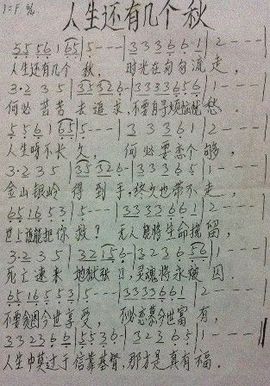 人生还有几个秋
1=F 4/4
5 5 5 6 1 6 5 | 5 - - - | 3 3 3 6 6 1 | 2 - - - |
人生还有几个 秋, 时光在匆匆流走,
3·2 3 5 | 3 5 3 2 6 - | 3 3 3 5 6 1 | 1 - - - |
何必 苦苦 去追求,不要自寻烦恼忧愁.
5 5 6 1 6 5 | 5 - - - | 3 3 3 6 6 1 | 2 - - - |
人生呀不长久, 何必要恋个够,
3·2 3 5 | 3 5 3 2 6 - | 3 3 5 6 1 | 1 - - - |
金山银岭 得到手,终久也带不走,
6 5 1 6 5 3 | 5 - - - | 3 3 3 2 6 1 | 2 - - - |
世上谁能把你救? 无人能将生命挽留,
3·2 3 5 | 3 2 1 6 - | 3 2 3 5 6 | 1 - - - |
死亡速来 地狱张口,灵魂将永被囚
6 5 1 6 5 3 | 5 - - - | 3 3 3 6 6 1 | 2 - - - |
不要贪图今世享受, 不必恋慕今世富有,
3 3 2 3 6 | 5 5 3 6 - | 3 2 3 6 5 6 | 1 - - - |
人生中莫过于信靠基督,那才是真有福.